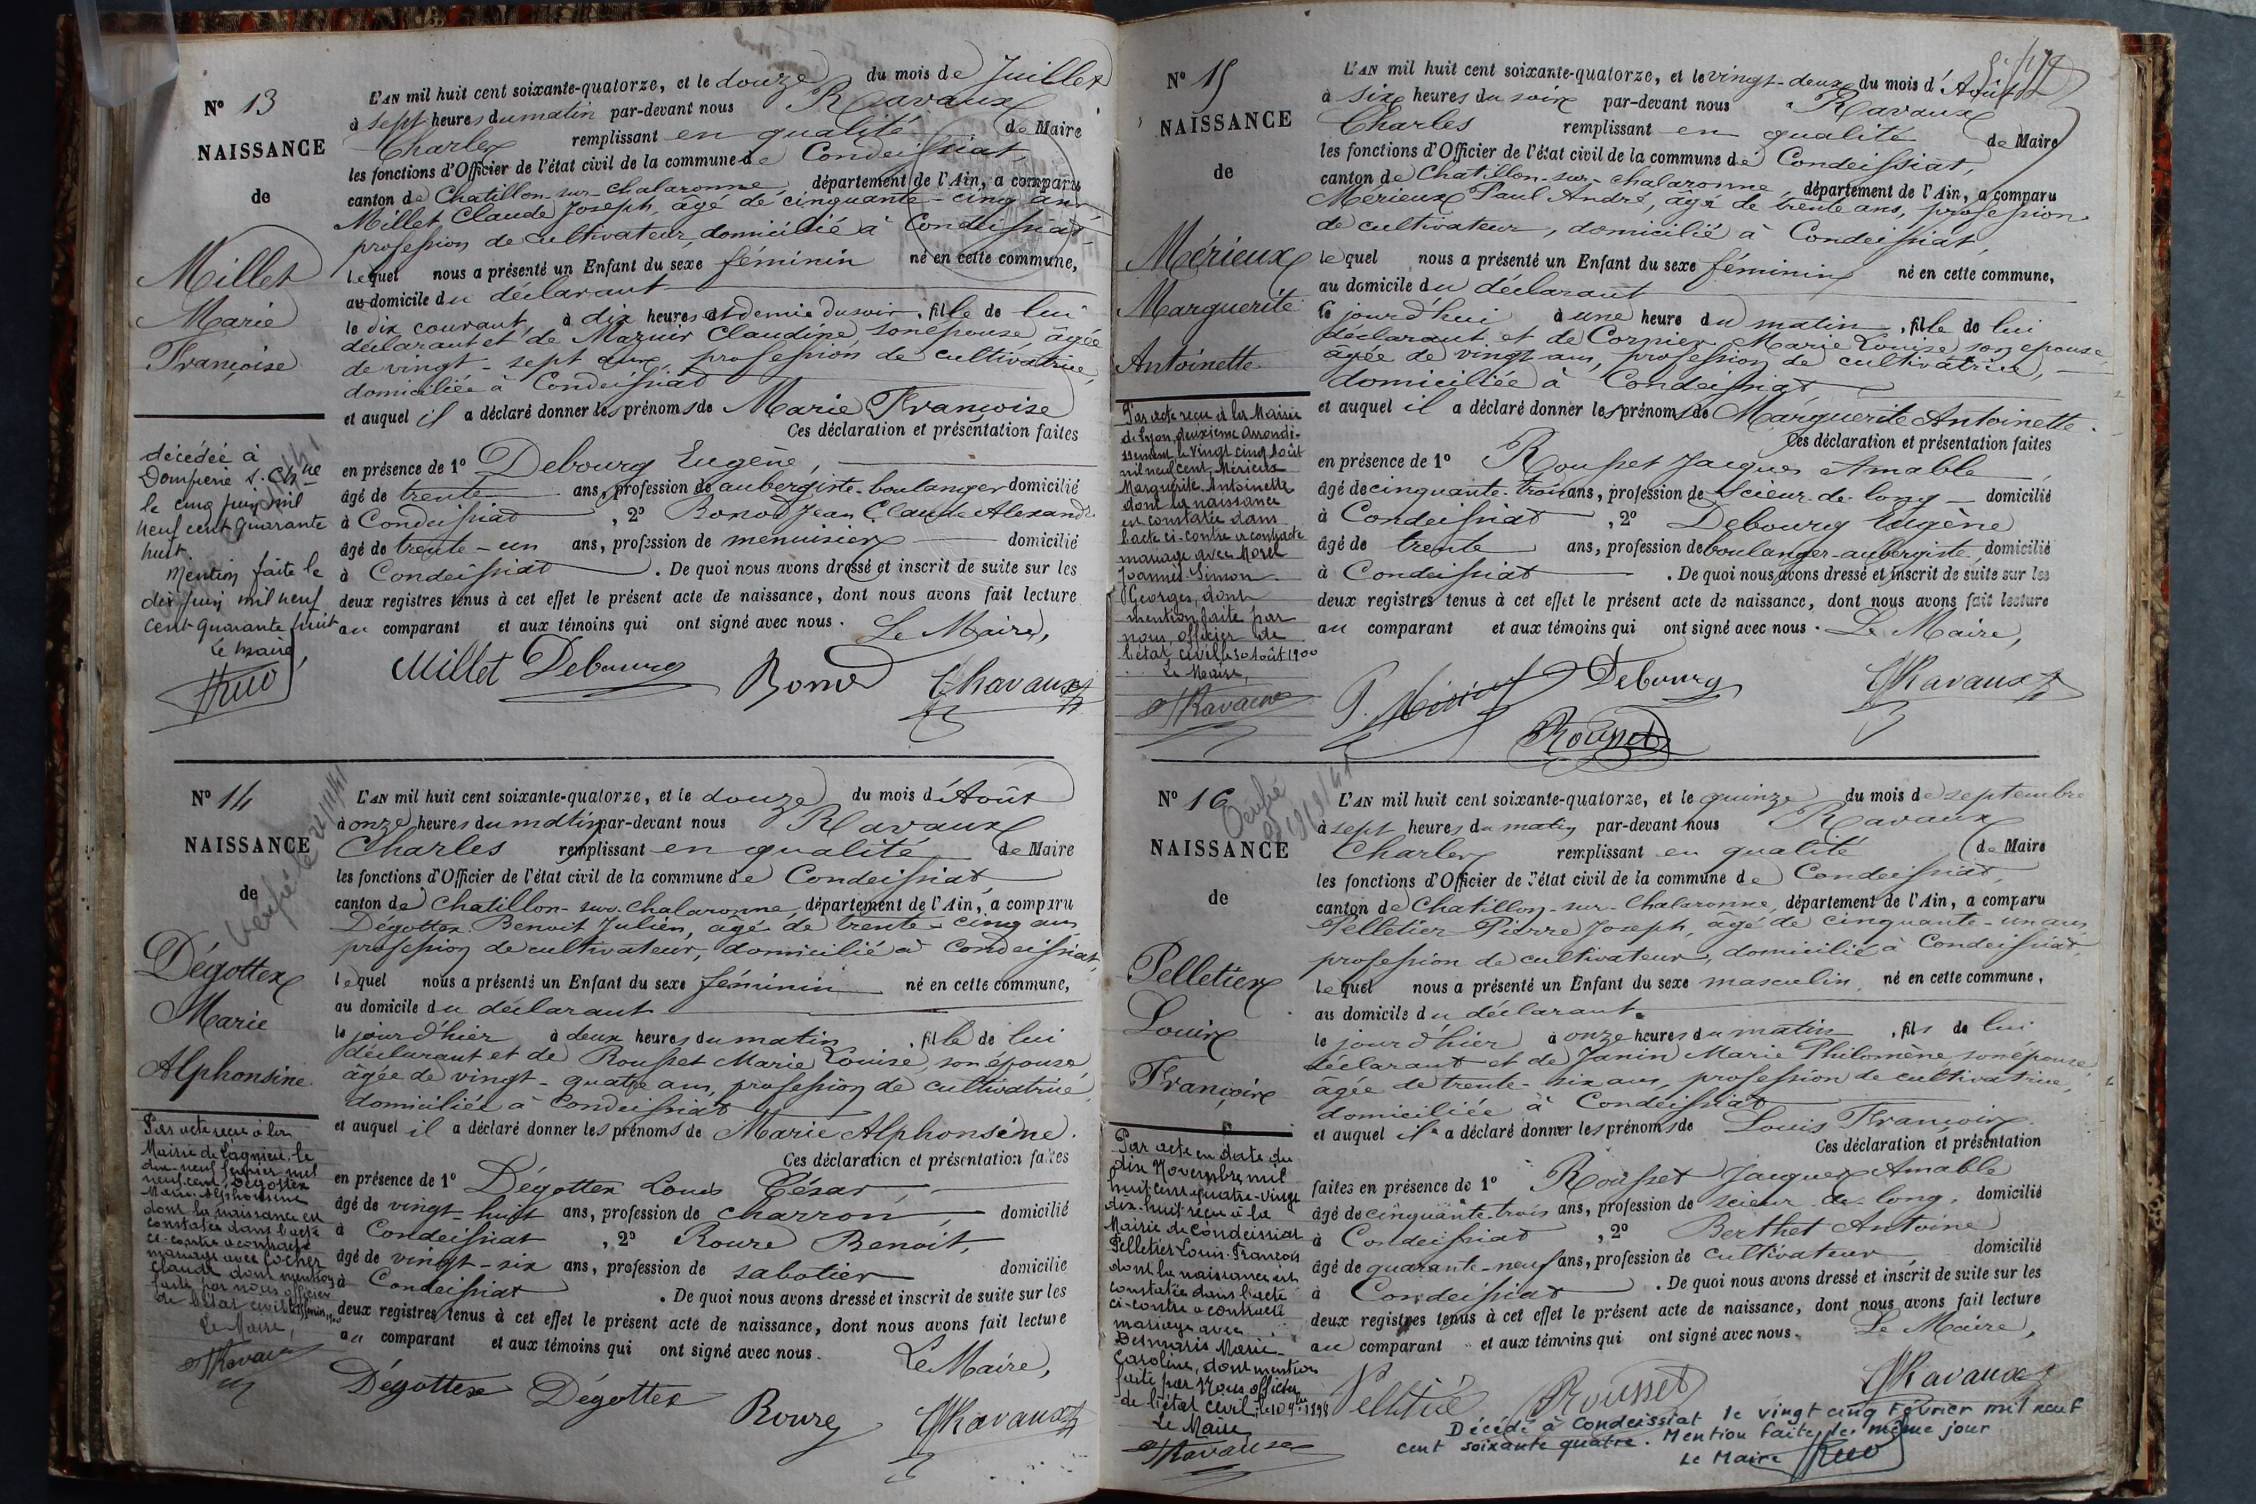 N° 13
NAISSANCE
de
Millet
Marie
Françoise
décédée à
Dompierre s. Chne
le cinq juin mil
neuf cent quarante
huit.
Mention faite le
dix juin mil neuf
cent quarante huit
Le Maire,
L'AN mil huit cent soixante-quatorze, et le douze du mois de Juillet
à sept heures du matin par-devant nous Ravaux
Charles remplissant en qualité de Maire
les fonctions d'Officier de l'état civil de la commune de Condeissiat,
canton de Chatillon-sur-Chalaronne, département de l'Ain, a comparu
Millet Claude Joseph, âgé de cinquante-cinq ans
profession de cultivateur, domicilié à Condeissiat
lequel nous a présenté un Enfant du sexe féminin né en cette commune,
au domicile du déclarant
le dix courant, à dix heures et demie du soir, fille de lui
déclarant et de Claudine, son épouse, âgée
de vingt-sept ans, profession de cultivatrice,
domiciliée à Condeissiat
et auquel il a déclaré donner les prénoms de Marie Françoise
Ces déclaration et présentation faites
en présence de 1° Debourg Eugène,
âgé de trente ans, profession de aubergiste-boulanger domicilié
à Condeissiat, 2° Bonod Jean Claude Alexandre
âgé de trente-un ans, profession de menuisier domicilié
à Condeissiat. De quoi nous avons dressé et inscrit de suite sur les
deux registres tenus à cet effet le présent acte de naissance, dont nous avons fait lecture
au comparant et aux témoins qui ont signé avec nous. Le Maire,
Millet Debourg Bonod Ch Ravaux
N° 14
NAISSANCE
de
Dégottex
Marie
Alphonsine
Vérifié le 21/11/41
Par acte reçu à la
Mairie de Lagnieu, le
dix-neuf février mil
neuf cent, Dégottex
Marie Alphonsine
dont la naissance est
constatée dans l'acte
ci-contre a contracté
mariage avec Cocher
Claude dont mention
faite par nous officier
de l'état civil
Le Maire,
Ravaux
L'AN mil huit cent soixante-quatorze, et le douze du mois d'Août
à onze heures du matin par-devant nous Ravaux
Charles remplissant en qualité de Maire
les fonctions d'Officier de l'état civil de la commune de Condeissiat,
canton de Chatillon-sur-Chalaronne, département de l'Ain, a comparu
Dégottex Benoit Julien, âgé de trente-cinq ans
profession de cultivateur, domicilié à Condeissiat,
lequel nous a présenté un Enfant du sexe féminin né en cette commune,
au domicile du déclarant
le jour d'hier à deux heures du matin, fille de lui
déclarant et de Rousset Marie Louise, son épouse,
âgée de vingt-quatre ans, profession de cultivatrice,
domiciliée à Condeissiat
et auquel il a déclaré donner les prénoms de Marie Alphonsine.
Ces déclaration et présentation faites
en présence de 1° Dégottex Louis César,
âgé de vingt-huit ans, profession de charron, domicilié
à Condeissiat, 2° Roure Benoit,
âgé de vingt-six ans, profession de sabotier domicilié
à Condeissiat. De quoi nous avons dressé et inscrit de suite sur les
deux registres tenus à cet effet le présent acte de naissance, dont nous avons fait lecture
au comparant et aux témoins qui ont signé avec nous. Le Maire,
Dégottex Dégottex Roure Ch Ravaux
N° 15
NAISSANCE
de
Mérieux
Marguerite
Antoinette
Par acte reçu à la Mairie
de Lyon, deuxième arrondi-
ssement le vingt cinq Août
mil neuf cent, Mérieux
Marguerite Antoinette
dont la naissance
est constatée dans
l'acte ci-contre a contracté
mariage avec Morel
Joannès Simon
Georges, dont
mention faite par
nous, officier de
l'état civil le 30 Août 1900
Le Maire,
Ravaux
L'AN mil huit cent soixante-quatorze, et le vingt-deux du mois d'Août
à six heures du soir par-devant nous Ravaux
Charles remplissant en qualité de Maire
les fonctions d'Officier de l'état civil de la commune de Condeissiat,
canton de Chatillon-sur-Chalaronne, département de l'Ain, a comparu
Mérieux Paul André, âgé de trente ans, profession
de cultivateur, domicilié à Condeissiat,
lequel nous a présenté un Enfant du sexe féminin né en cette commune,
au domicile du déclarant
le jour d'hui à une heure du matin, fille de lui
déclarant et de Cornier Marie Louise son épouse,
âgée de vingt ans, profession de cultivatrice,
domiciliée à Condeissiat
et auquel il a déclaré donner les prénoms de Marguerite Antoinette.
Ces déclaration et présentation faites
en présence de 1° Rousset Jacques Amable
âgé de cinquante-trois ans, profession de scieur-de-long domicilié
à Condeissiat, 2° Debourg Eugène
âgé de trente ans, profession de boulanger-aubergiste domicilié
à Condeissiat. De quoi nous avons dressé et inscrit de suite sur les
deux registres tenus à cet effet le présent acte de naissance, dont nous avons fait lecture
au comparant et aux témoins qui ont signé avec nous. Le Maire,
P. Mérieux Debourg Ch Ravaux
Rousset
N° 16
NAISSANCE
de
Pelletier
Louis
François
Par acte en date du
dix Novembre mil
huit cent quatre-vingt
dix-huit reçu à la
Mairie de Condeissiat
Pelletier Louis-François
dont la naissance est
constatée dans l'acte
ci-contre a contracté
mariage avec
Desmaris Marie-
Caroline, dont mention
faite par Nous officier
de l'état civil, le 10 9bre 1898
Le Maire,
Ravaux
L'AN mil huit cent soixante-quatorze, et le quinze du mois de septembre
à sept heures du matin par-devant nous Ravaux
Charles remplissant en qualité de Maire
les fonctions d'Officier de l'état civil de la commune de Condeissiat,
canton de Chatillon-sur-Chalaronne, département de l'Ain, a comparu
Pelletier Pierre Joseph, âgé de cinquante-un ans,
profession de cultivateur, domicilié à Condeissiat,
lequel nous a présenté un Enfant du sexe masculin, né en cette commune,
au domicile du déclarant
le jour d'hier à onze heures du matin, fils de lui
déclarant et de Janin Marie Philomène son épouse,
âgée de trente-six ans, profession de cultivatrice,
domiciliée à Condeissiat
et auquel il a déclaré donner les prénoms de Louis François
Ces déclaration et présentation
faites en présence de 1° Rousset Jacques Amable
âgé de cinquante-trois ans, profession de scieur-de-long, domicilié
à Condeissiat, 2° Berthet Antoine
âgé de quarante-neuf ans, profession de cultivateur domicilié
à Condeissiat. De quoi nous avons dressé et inscrit de suite sur les
deux registres tenus à cet effet le présent acte de naissance, dont nous avons fait lecture
au comparant et aux témoins qui ont signé avec nous. Le Maire,
Pelletié Rousset Ch Ravaux
Décédé à Condeissiat le vingt cinq Février mil neuf
cent soixante quatre. Mention faite le même jour
Le Maire